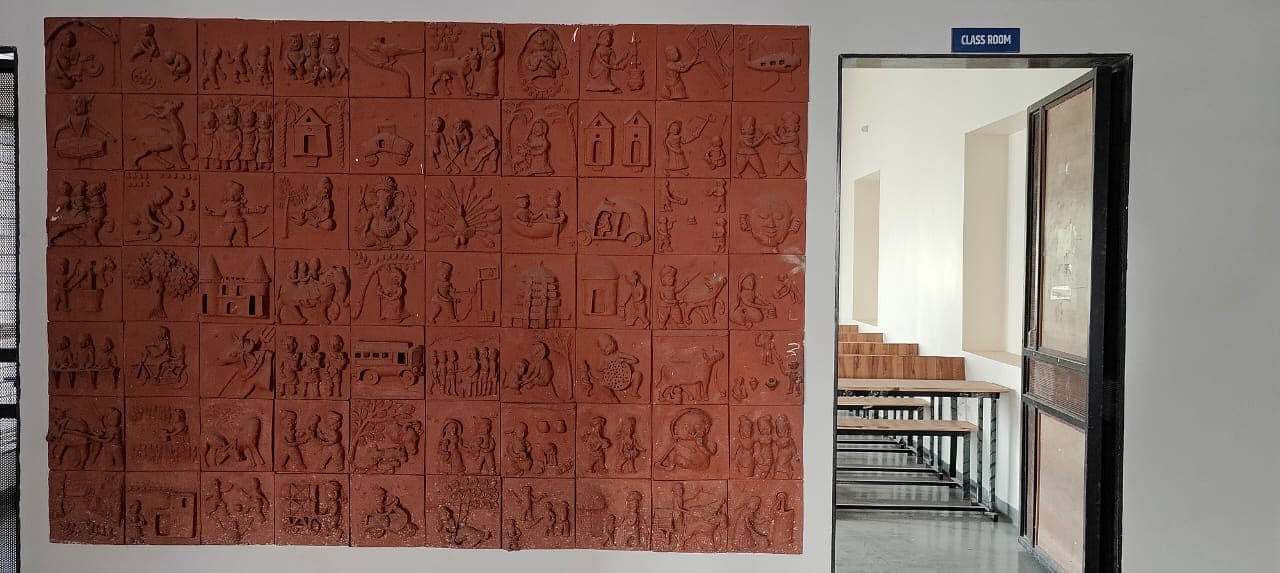 CLASS ROOM